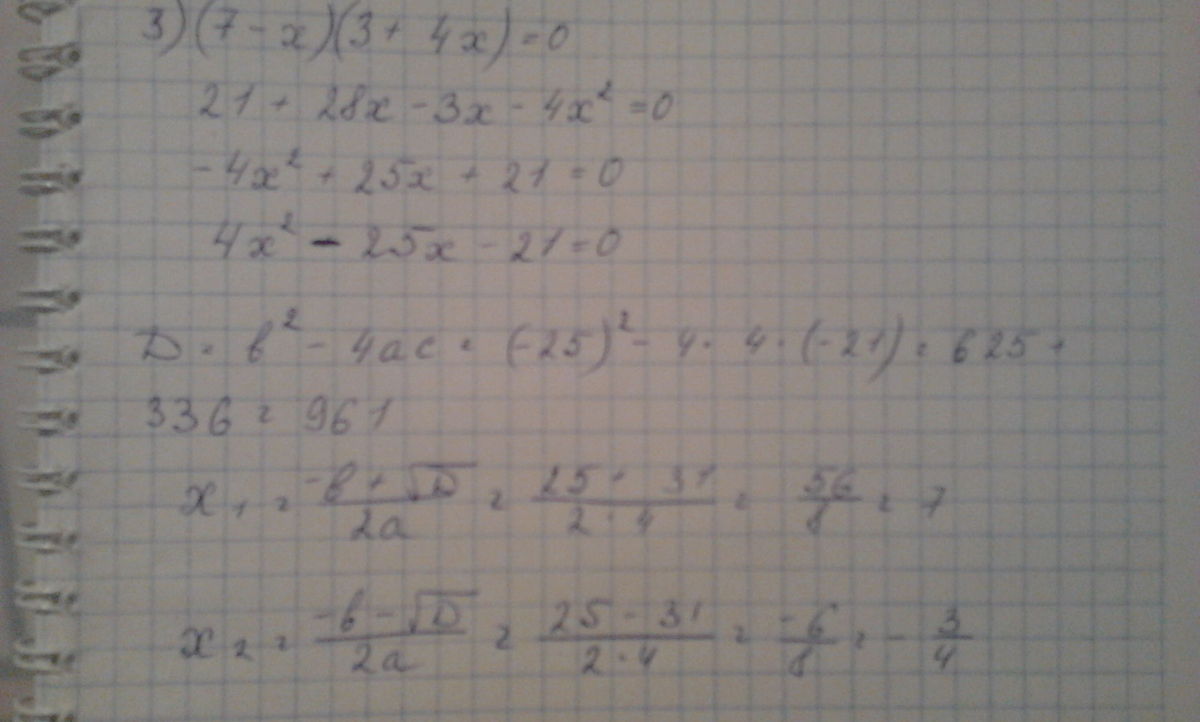 3) (7 - x)(3 + 4x) = 0
21 + 28x - 3x - 4x² = 0
-4x² + 25x + 21 = 0
4x² - 25x - 21 = 0
D = b² - 4ac = (-25)² - 4 · 4 · (-21) = 625 +
336 = 961
x₁ = \frac{-b + √D}{2a} = \frac{25 + 31}{2 · 4} = \frac{56}{8} = 7
x₂ = \frac{-b - √D}{2a} = \frac{25 - 31}{2 · 4} = \frac{-6}{8} = - \frac{3}{4}